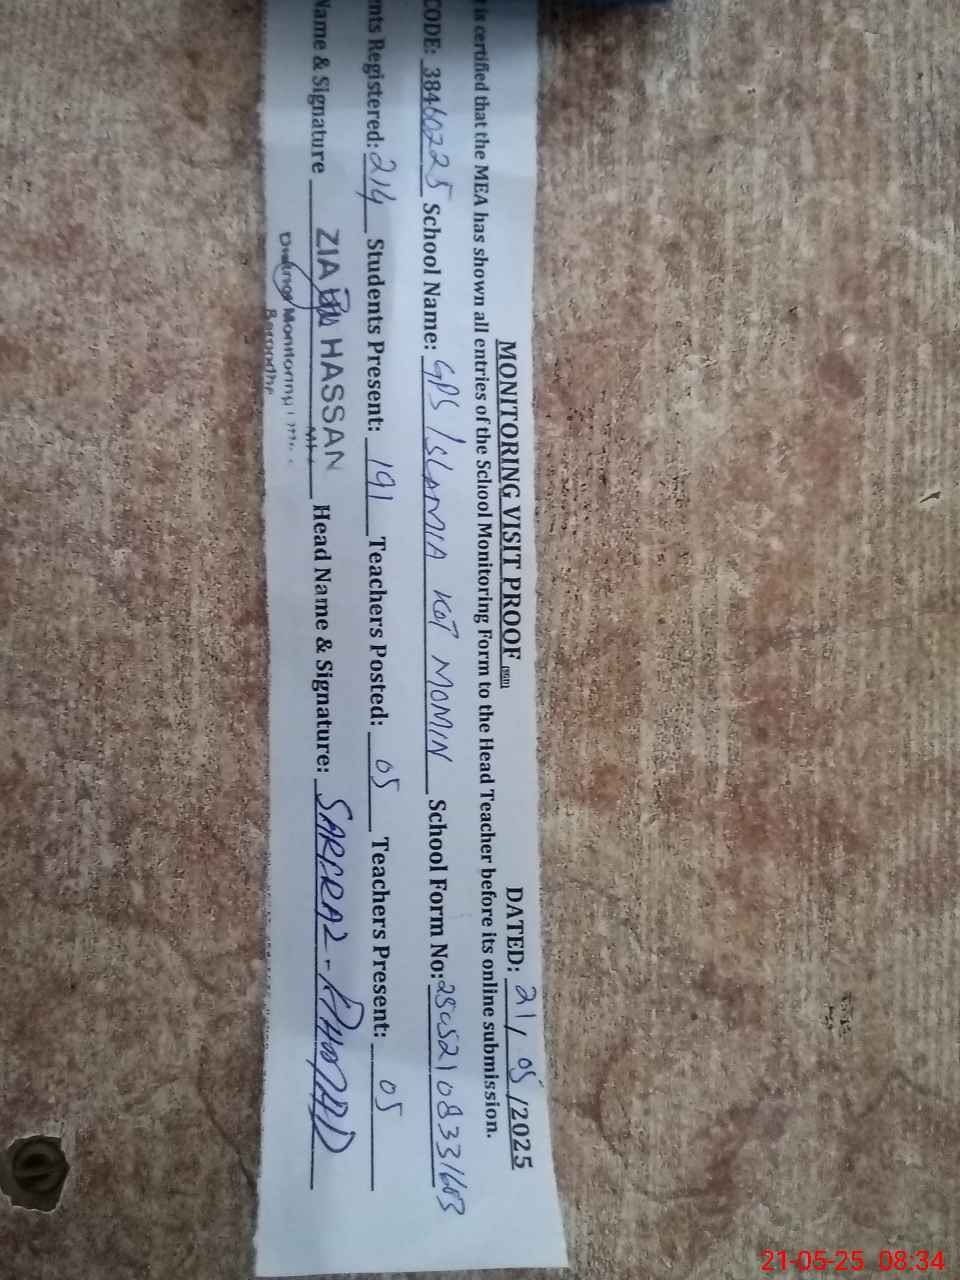 MONITORING VISIT PROOF (SSD) DATED: 21/05/2025
t is certified that the MEA has shown all entries of the School Monitoring Form to the Head Teacher before its online submission.
CODE: 38460225 School Name: GPS ISLAMIA KOT MOMIN School Form No: 25052108331603
nts Registered: 214 Students Present: 191 Teachers Posted: 05 Teachers Present: 05
Name & Signature ZIA HASSAN Head Name & Signature:
Monitoring
21-05-25 08:34